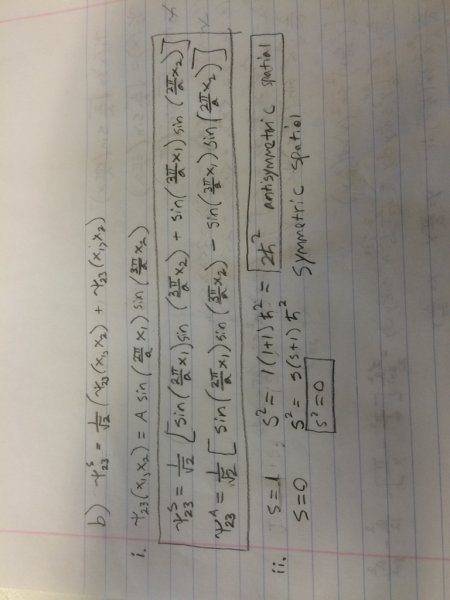 b) ψ₂₃ˢ = 1/√2 (ψ₂₃(x₁,x₂) + ψ₂₃(x₁,x₂)
i. ψ₂₃(x₁,x₂) = A sin(2π/a x₁) sin(3π/a x₂)
ψ₂₃ˢ = 1/√2 [ sin(2π/a x₁) sin(3π/a x₂) + sin(3π/a x₁) sin(2π/a x₂) ]
ψ₂₃ᴬ = 1/√2 [ sin(2π/a x₁) sin(3π/a x₂) − sin(3π/a x₁) sin(2π/a x₂) ]
ii. S=1 S² = 1(1+1)ħ² = 2ħ² antisymmetric spatial
S=0 S² = s(s+1)ħ² symmetric spatial
S²=0